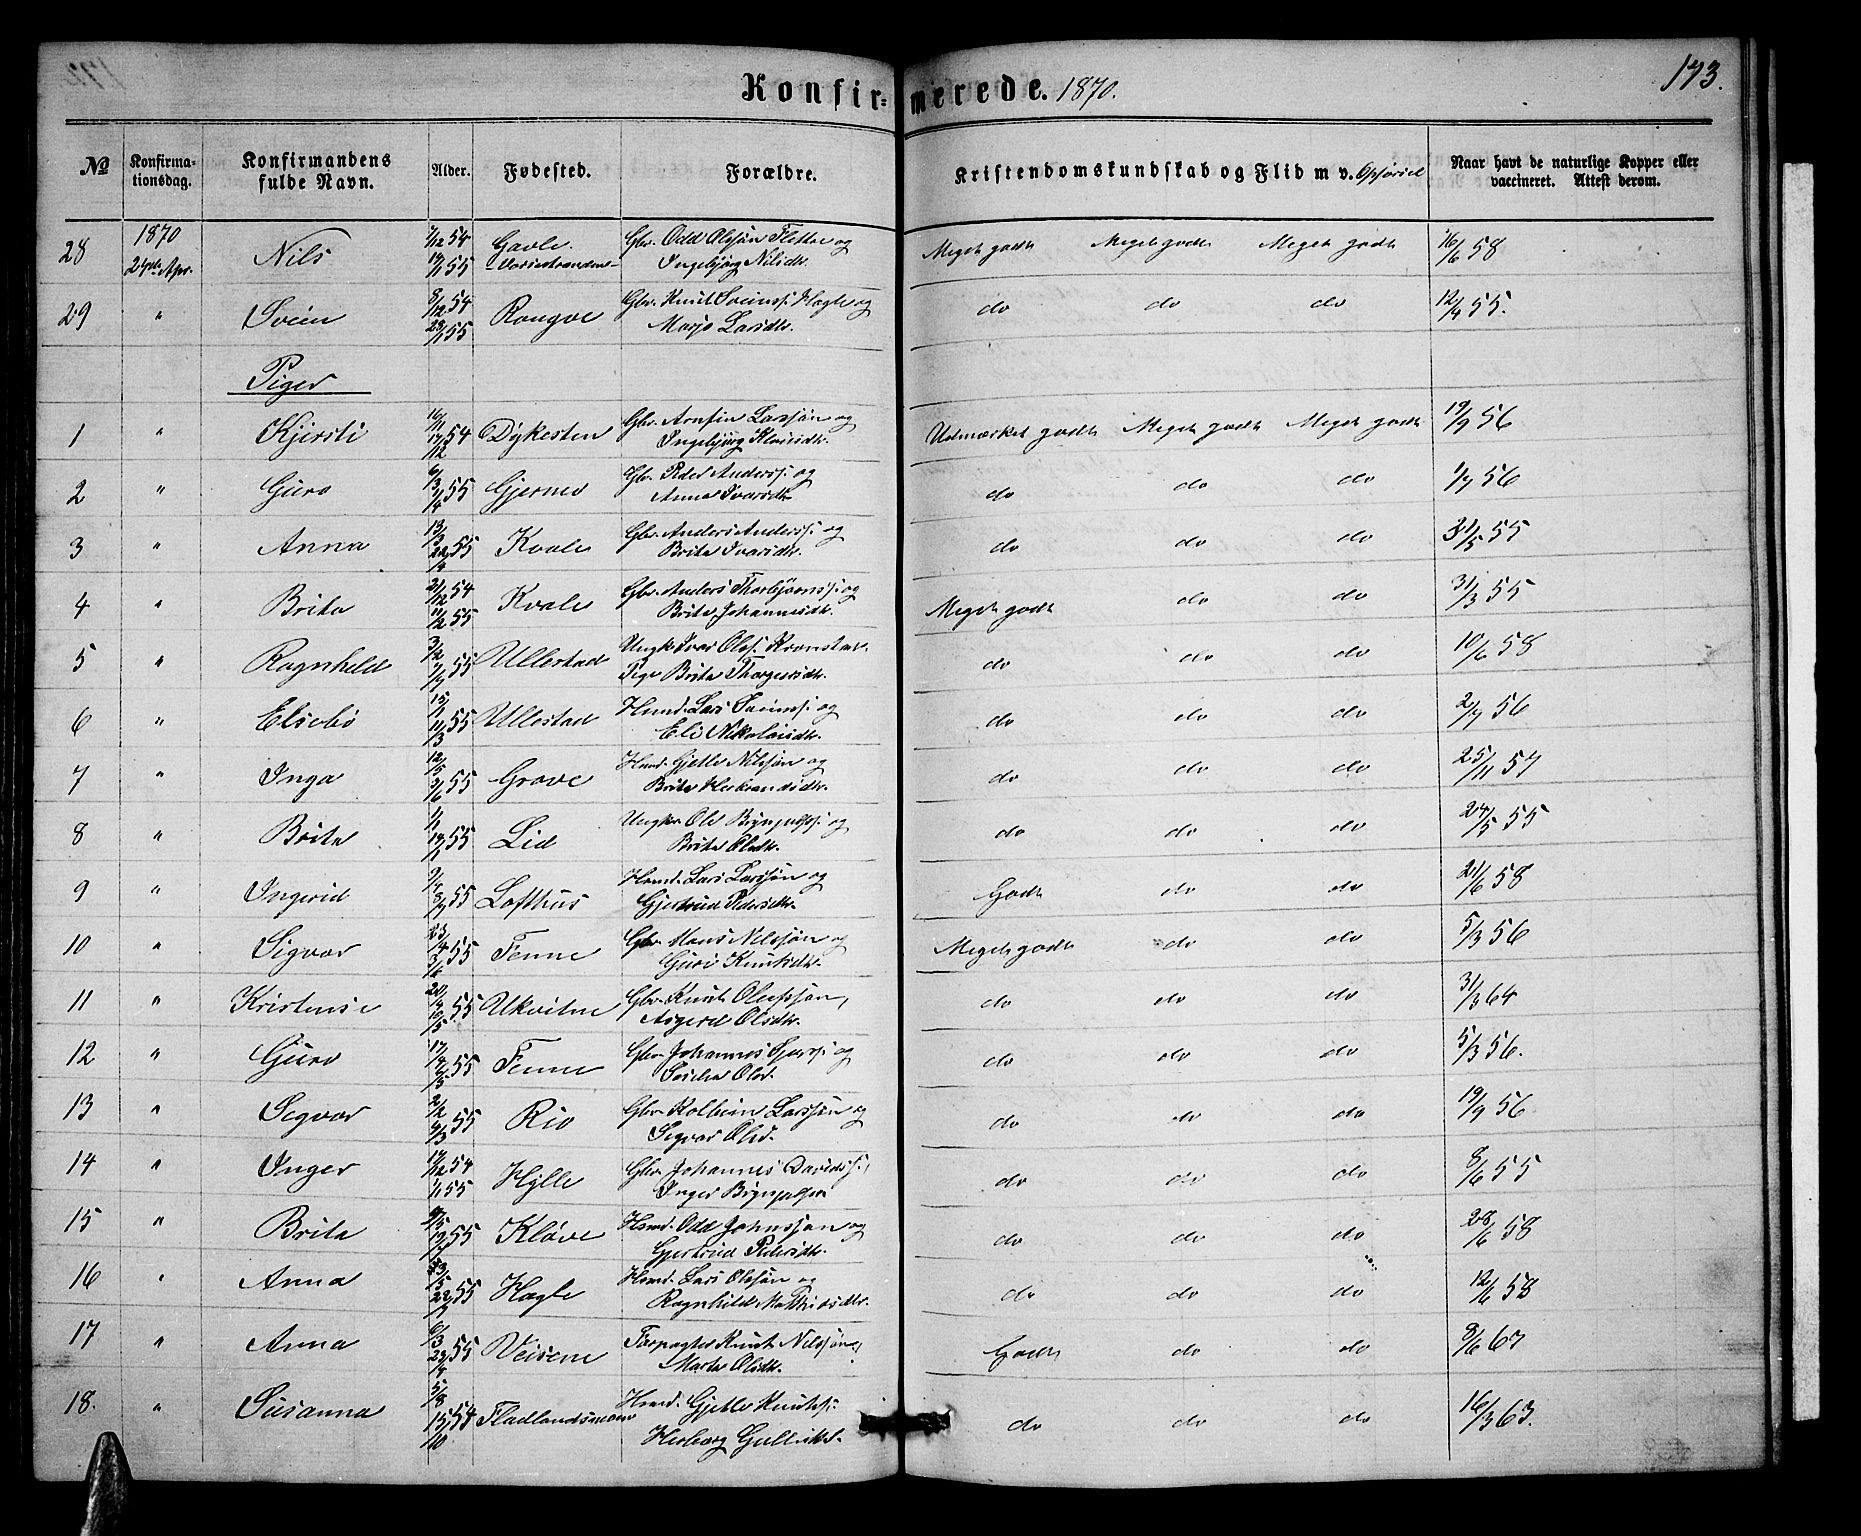 Konfirmerede. 1870. 173.
No Konfirmationsdag. Konfirmandens fulde Navn. Alder. Fødested. Forældre. Kristendomskundskab og Flid m v. Opførsel Naar havt de naturlige Kopper eller vaccineret. Attest derom.
28 1870 24de Apr. Nils 54 55 Gavle Gbr. Odd Olssøn Flette og Ingebjørg Nilsdtr. Meget godt Meget godt Meget godt 16/6 58
29 " Svein 8/12 54 55 Rongve Gbr. Knut Sveinss: Hagle og Marjo Larsdtr. do do do 12/4 55.
Piger
1 " Kjersti 16/11 54 Dykesten Gbr. Arnfin Larssøn og Ingebjørg Udmærket godt Meget godt Meget godt 19/9 56
2 " Guro 6/3 55 Gjerne Gbr. Peder Anderss: og Anna Ivarsdtr. do do do 56
3 " Anna 13/3 55 Kvale Gbr. Anders Anderss: og Brita Ivarsdtr. do do do 31/5 55
4 " Brita 21/12 54 11/2 55 Kvale Gbr. Anders Thorbjørnss: og Brita Johannesdtr. Meget godt do do 31/3 55
5 " Ragnhild 3/2 55 Ullestad Ungk. Ivar Olss: Pige Brita Thorgersdtr. do do do 10/6 58
6 " Elsebø 15/1 11/3 55 Ullestad Husmd. Lars Sveinss: og Eli Nikolaisdtr. do do do 2/7 56
7 " Inga 12/5 3/6 55 Grove Husmd. Gjetle Nilssøn og Brita do do do 25/11 57
8 " Brita 1/1 55 Lid Ungkr. Ole Brynjulfss: og Brita Olsdtr. do do do 24/5 55
9 " Ingerid 55 Lofthus Husmd. Lars Larssøn og Gjertrud Pedersdtr. Godt do do 21/6 58
10 " Sigvor 23/4 3/6 55 Tenne Gbr. Mons Nilssøn og Guri Knutsdtr. Meget godt do do 5/3 56
11 " Kristense 55 Ukvitne Gbr. Knut Olufssøn, Asgerd Olsdtr. do do do 31/3 64
12 " Guro 17/4 55 Tenne Gbr. Johannes og Olsd. do do do 5/3 56.
13 " Segvor 2/2 4/3 55 Rio Gbr. Kolbein Larssøn og Segvor Olsd. do do do 19/9 56
14 " Inger 54 1/1 55 Hylle Gbr. Johannes Davidss:, Inger do do do 8/6 55
15 " Brita 55 Kløve Husmd. Odd Johnssøn og Gjertrud Pedersdtr. do do do 28/6 58
16 " Anna 55 Hagle Husmd. Lars Olssøn og Ragnhild Mathiasdtr. do do do 12/6 58
17 " Anna 6/3 55 Veisene Forpagter Knut Nilssøn, Marta Olsdtr. Godt do do 8/6 67
18. " Susanna 5/8 15/10 54 Husmd. Gjetle Knutss: Herborg do do do 16/3 63.